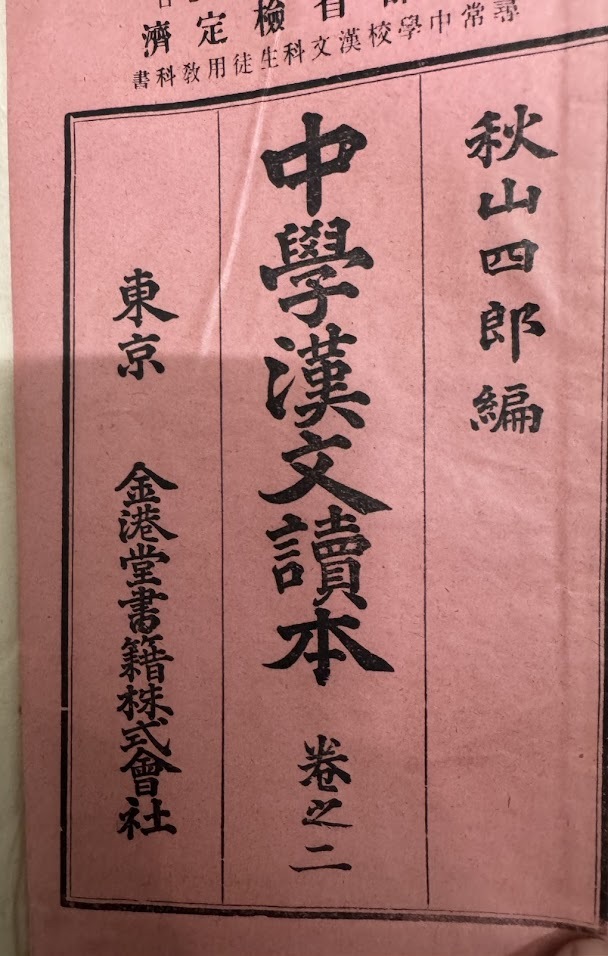 省檢定濟
尋常中學校漢文科生徒用敎科書
秋山四郎編
中學漢文讀本 卷之二
東京 金港堂書籍株式會社